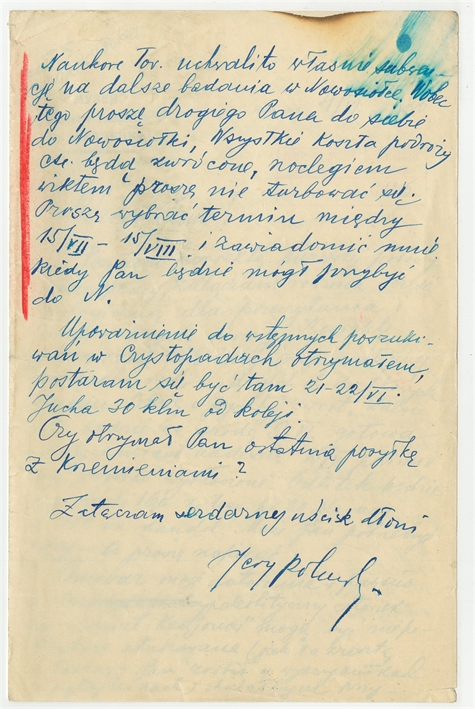 Naukowe Tow. uchwaliło właśnie subwen-
cję na dalsze badania w Nowosiółce, Wobec
tego proszę drogiego Pana do siebie
do Nowosiółki, Wszystkie koszta podróży
etc. będą zwrócone, noclegiem
wiktem proszę nie turbować się.
Proszę wybrać termin między
15/VII – 15/VIII i zawiadomić mnie
kiedy Pan będzie mógł przybyć
do N.
Upoważnienie do wstępnych poszuki-
wań w Czystopadach otrzymałem,
postaram się być tam 21-22/VI.
30 klm od kolei.
Czy otrzymał Pan ostatnią posyłkę
z Krzemieniami?
Załączam serdeczny uścisk dłoni
Jerzy